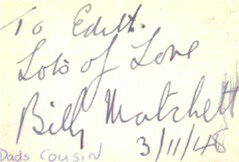 To Edith.
Lots of Love
Billy Matchett
3/11/48
Dads COUSIN